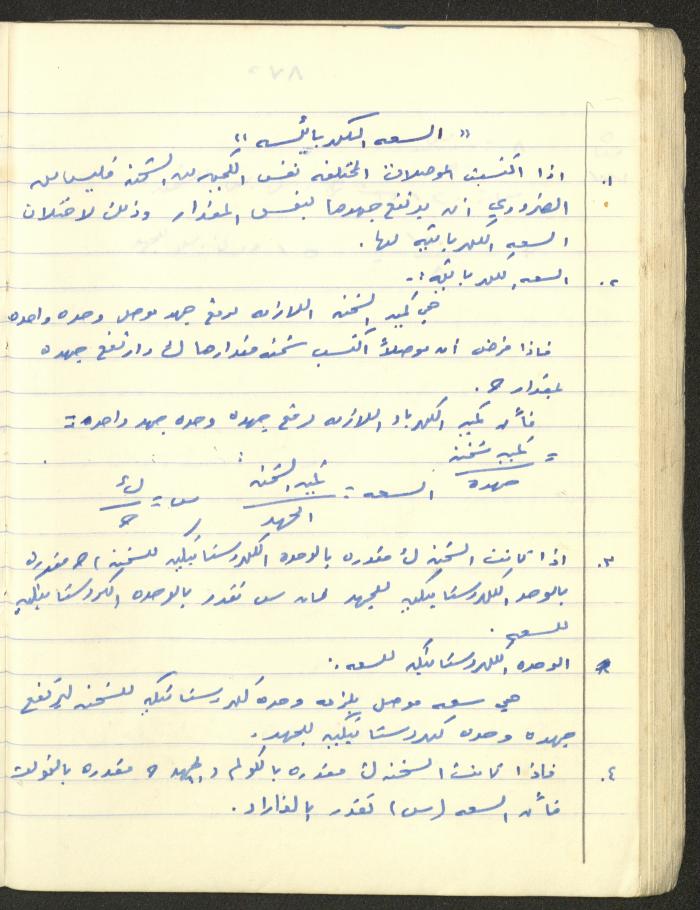 « السعه الكهربائيه »
١. اذا اكتسبت الموصلات المختلفه نفس الكميه من الشحنة فليس من
الضروري ان يرتفع جهدها بنفس المقدار وذلك لاختلاف
السعه الكهربائيه لها .
٢. السعه الكهربائيه :-
هي كمية الشحنه اللازمه لرفع جهد موصل وحده واحده
فاذا فرض ان موصلاً اكتسب شحنه مقدارها ك وارتفع جهده
بمقدار جـ .
فأن كمية الكهرباء اللازمه لرفع جهده وحده جهد واحده =
= كمية شحنته / جهده السعه = كمية الشحنه / الجهد , س = ك / جـ
٣. اذا كانت الشحنه ك مقدره بالوحده الكهروستاتيكيه للشحنه ، جـ مقدره
بالوحده الكهروستاتيكيه للجهد فان س تقدر بالوحده الكهروستاتيكيه
للسعه .
الوحده الكهروستاتيكيه للسعه :-
هي سعه موصل يلزمه وحدة كهروستاتيكيه للشحنه ليرتفع
جهده وحده كهروستاتيكيه للجهد .
٤. فاذا كانت الشحنه ك مقدره بالكولم والجهد جـ مقدره بالفولت
فأن السعه (س) تقدر بالفاراد .